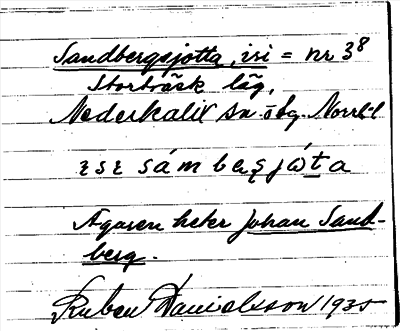 Sandbergsjotta, isi = nr 3⁸
Storträsk läg,
Nederkalix sn. öbg. Norrb-l
sám be jώta
Ägaren heter Johan Sand-
berg.
Ruben Danielsson 1935